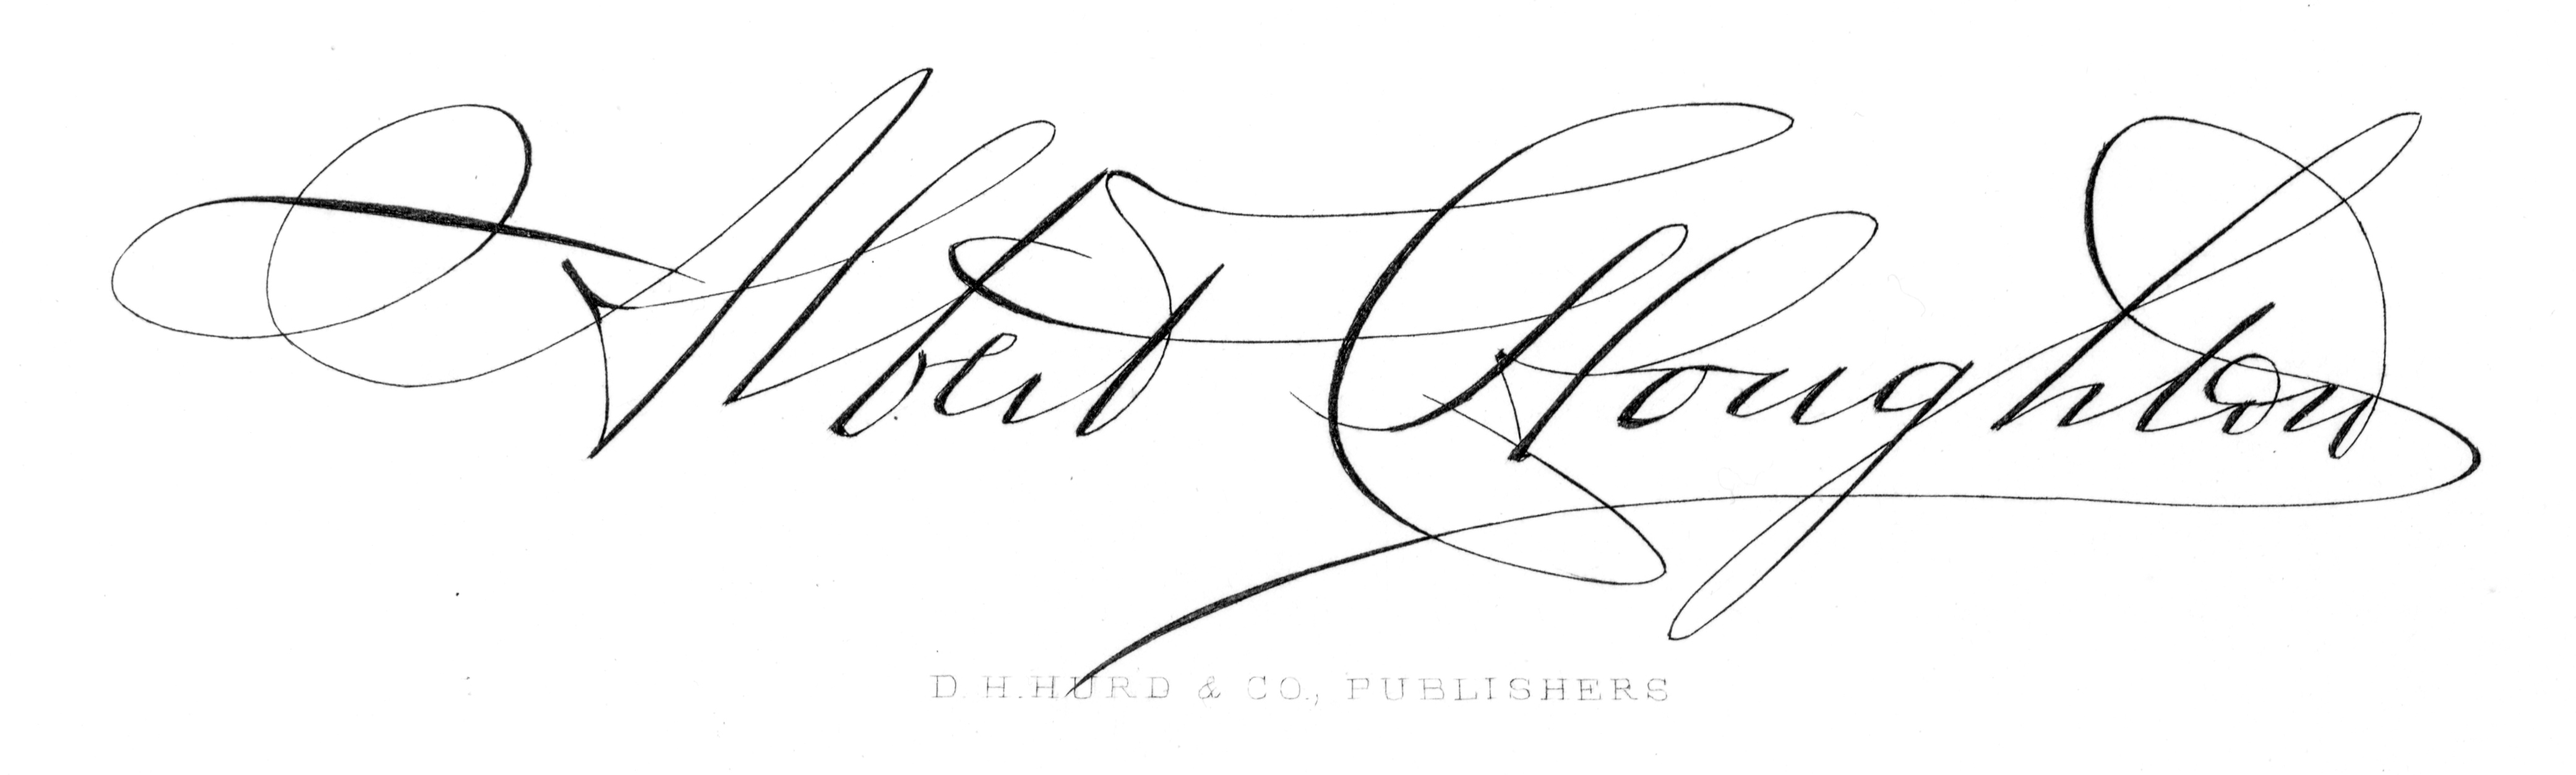 Albert C Houghton
D. H. HURD & CO., PUBLISHERS